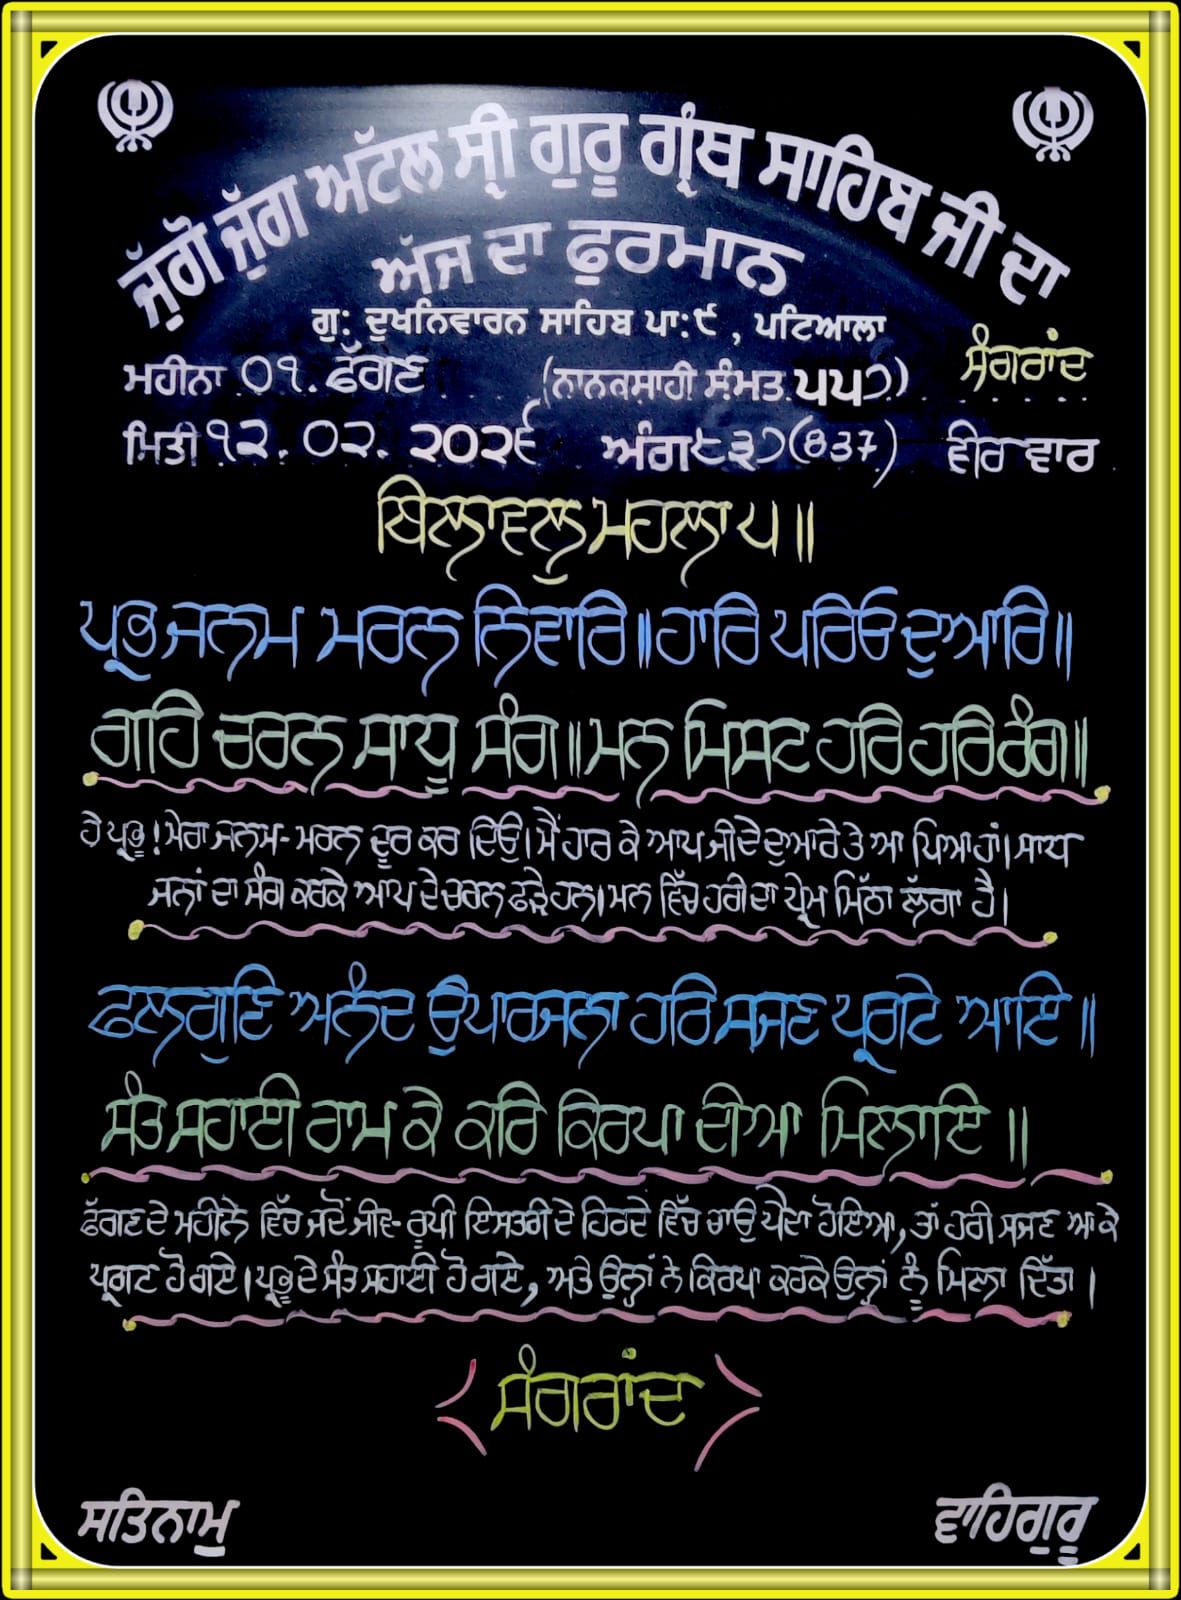 ਜੁੱਗੋ ਜੁੱਗ ਅਟੱਲ ਸ੍ਰੀ ਗੁਰੂ ਗ੍ਰੰਥ ਸਾਹਿਬ ਜੀ ਦਾ
ਅੱਜ ਦਾ ਫੁਰਮਾਨ
ਗੁ: ਦੁਖਨਿਵਾਰਨ ਸਾਹਿਬ ਪਾ:੯ , ਪਟਿਆਲਾ
ਸੰਗਰਾਂਦ
ਮਹੀਨਾ ੦੧. ਫੱਗਣ (ਨਾਨਕਸ਼ਾਹੀ ਸੰਮਤ ੫੫੭)
ਮਿਤੀ ੧੨. ੦੨. ੨੦੨੬ ਅੰਗ ੮੩੭ (837) ਵੀਰ ਵਾਰ
ਬਿਲਾਵਲੁ ਮਹਲਾ ੫ ॥
ਪ੍ਰਭ ਜਨਮ ਮਰਨ ਨਿਵਾਰਿ ॥ ਹਾਰਿ ਪਰਿਓ ਦੁਆਰਿ ॥
ਗਹਿ ਚਰਨ ਸਾਧੂ ਸੰਗ ॥ ਮਨ ਮਿਸਟ ਹਰਿ ਹਰਿ ਰੰਗ ॥
ਹੇ ਪ੍ਰਭੂ ! ਮੇਰਾ ਜਨਮ- ਮਰਨ ਦੂਰ ਕਰ ਦਿਓ। ਮੈਂ ਹਾਰ ਕੇ ਆਪ ਜੀ ਦੇ ਦੁਆਰੇ ਤੇ ਆ ਪਿਆ ਹਾਂ। ਸਾਧ
ਜਨਾਂ ਦਾ ਸੰਗ ਕਰਕੇ ਆਪ ਦੇ ਚਰਨ ਫੜੇ ਹਨ। ਮਨ ਵਿੱਚ ਹਰੀ ਦਾ ਪ੍ਰੇਮ ਮਿੱਠਾ ਲੱਗਾ ਹੈ।
ਫਲਗੁਣਿ ਅਨੰਦ ਉਪਾਰਜਨਾ ਹਰਿ ਸਜਣ ਪ੍ਰਗਟੇ ਆਇ ॥
ਸੰਤ ਸਹਾਈ ਰਾਮ ਕੇ ਕਰਿ ਕਿਰਪਾ ਦੀਆ ਮਿਲਾਇ ॥
ਫੱਗਣ ਦੇ ਮਹੀਨੇ ਵਿੱਚ ਜਦੋਂ ਜੀਵ- ਰੂਪੀ ਇਸਤਰੀ ਦੇ ਹਿਰਦੇ ਵਿੱਚ ਚਾਉ ਪੈਦਾ ਹੋਇਆ, ਤਾਂ ਹਰੀ ਸਜਣ ਆ ਕੇ
ਪ੍ਰਗਟ ਹੋ ਗਏ। ਪ੍ਰਭੂ ਦੇ ਸੰਤ ਸਹਾਈ ਹੋ ਗਏ, ਅਤੇ ਉਨ੍ਹਾਂ ਨੇ ਕਿਰਪਾ ਕਰਕੇ ਉਨ੍ਹਾਂ ਨੂੰ ਮਿਲਾ ਦਿੱਤਾ ।
ਸੰਗਰਾਂਦ
ਸਤਿਨਾਮੁ ਵਾਹਿਗੁਰੂ